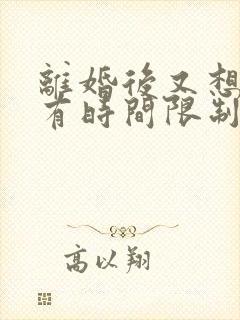 離婚後又想
有時間限制
高以翔